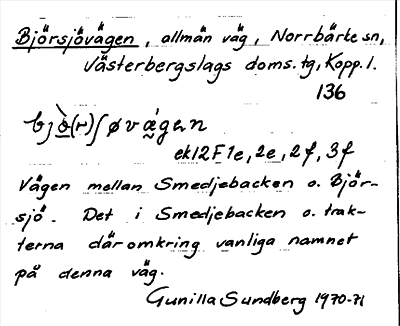 Björsjövägen, allmän väg, Norrbärke sn,
Västerbergslags doms. tg, Kopp. l.
136
bjò̱(r)ʃøvä́gɘn
ek 12F 1e, 2e, 2f, 3f
Vägen mellan Smedjebacken o. Björ-
sjö. Det i Smedjebacken o. trak-
terna däromkring vanliga namnet
på denna väg.
Gunilla Sundberg 1970-71